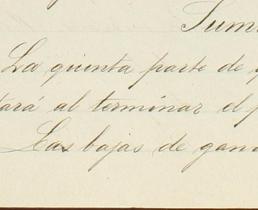 Sum
La quinta parte de g
tará al terminar el p
Las bajas de gana